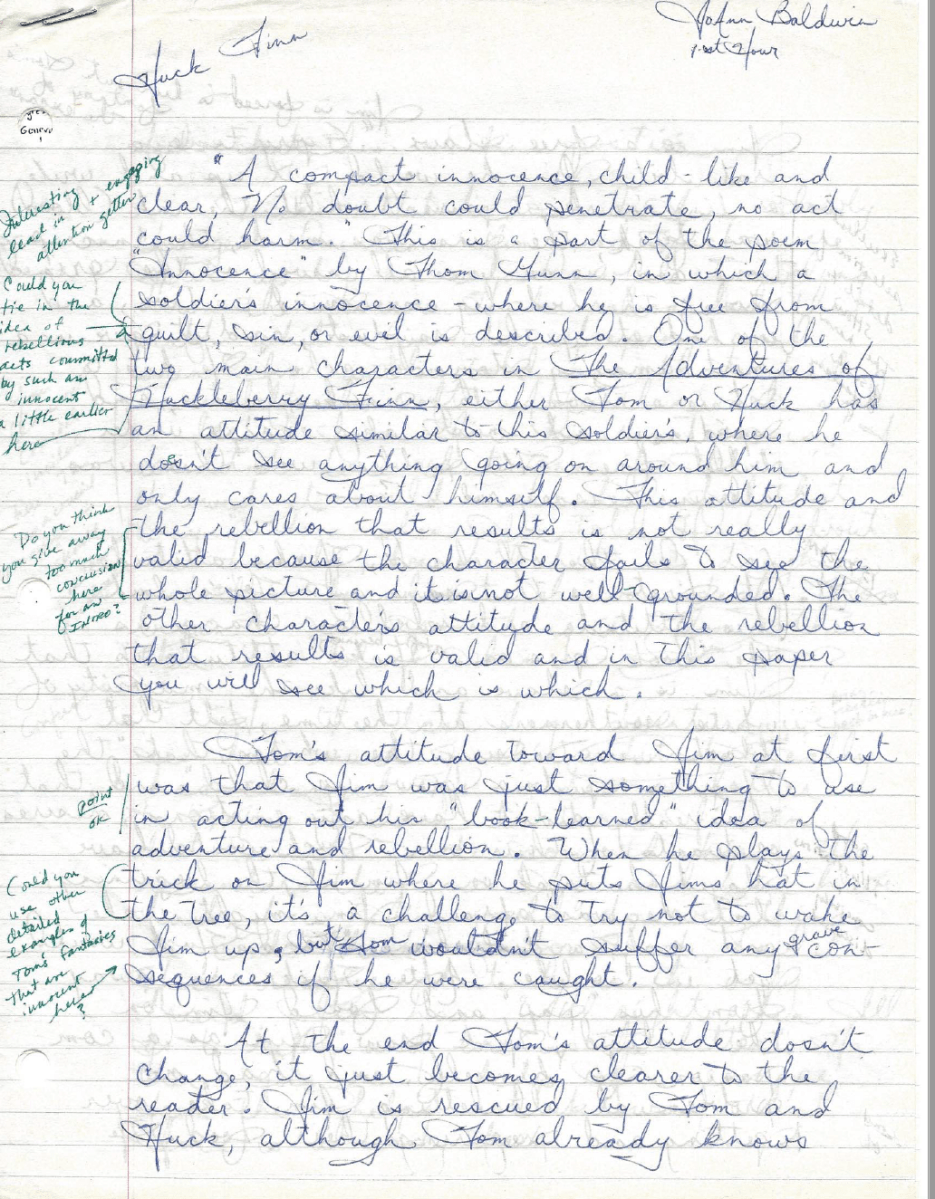 JoAnn Baldwin
1-st Hour
Huck Finn
Geneva
Interesting + engaging
lead in
attention getter
"A compact innocence, child-like and
clear, No doubt could penetrate, no act
could harm." This is a part of the poem
"Innocence" by Thom Gunn, in which a
soldier's innocence - where he is free from
guilt, sin, or evel is described. One of the
two main characters in The Adventures of
Huckleberry Finn, either Tom or Huck has
an attitude similar to this soldier's, where he
dosn't see anything going on around him and
only cares about himself. This attitude and
the rebellion that results is not really
valid because the character fails to see the
whole picture and it is not well grounded. The
other character's attitude and the rebellion
that results is valid and in this paper
you will see which is which.
Could you
tie in the
idea of
rebellious
acts committed
by such an
innocent
a little earlier
here
Do you think
you give away
too much
conclusion
here
for an
INTRO?
Tom's attitude toward Jim at first
was that Jim was just something to use
in acting out his "book-learned" idea of
adventure and rebellion. When he plays the
trick on Jim where he puts Jims hat in
the tree, it's a challenge to try not to wake
Jim up, but Tom wouldn't suffer any grave con-
sequences if he were caught.
point
ok
Could you
use other
detailed
examples of
Tom's fantasies
that are
innocent
here?
At the end Tom's attitude dosn't
change, it just becomes clearer to the
reader. Jim is rescued by Tom and
Huck, although Tom already knows